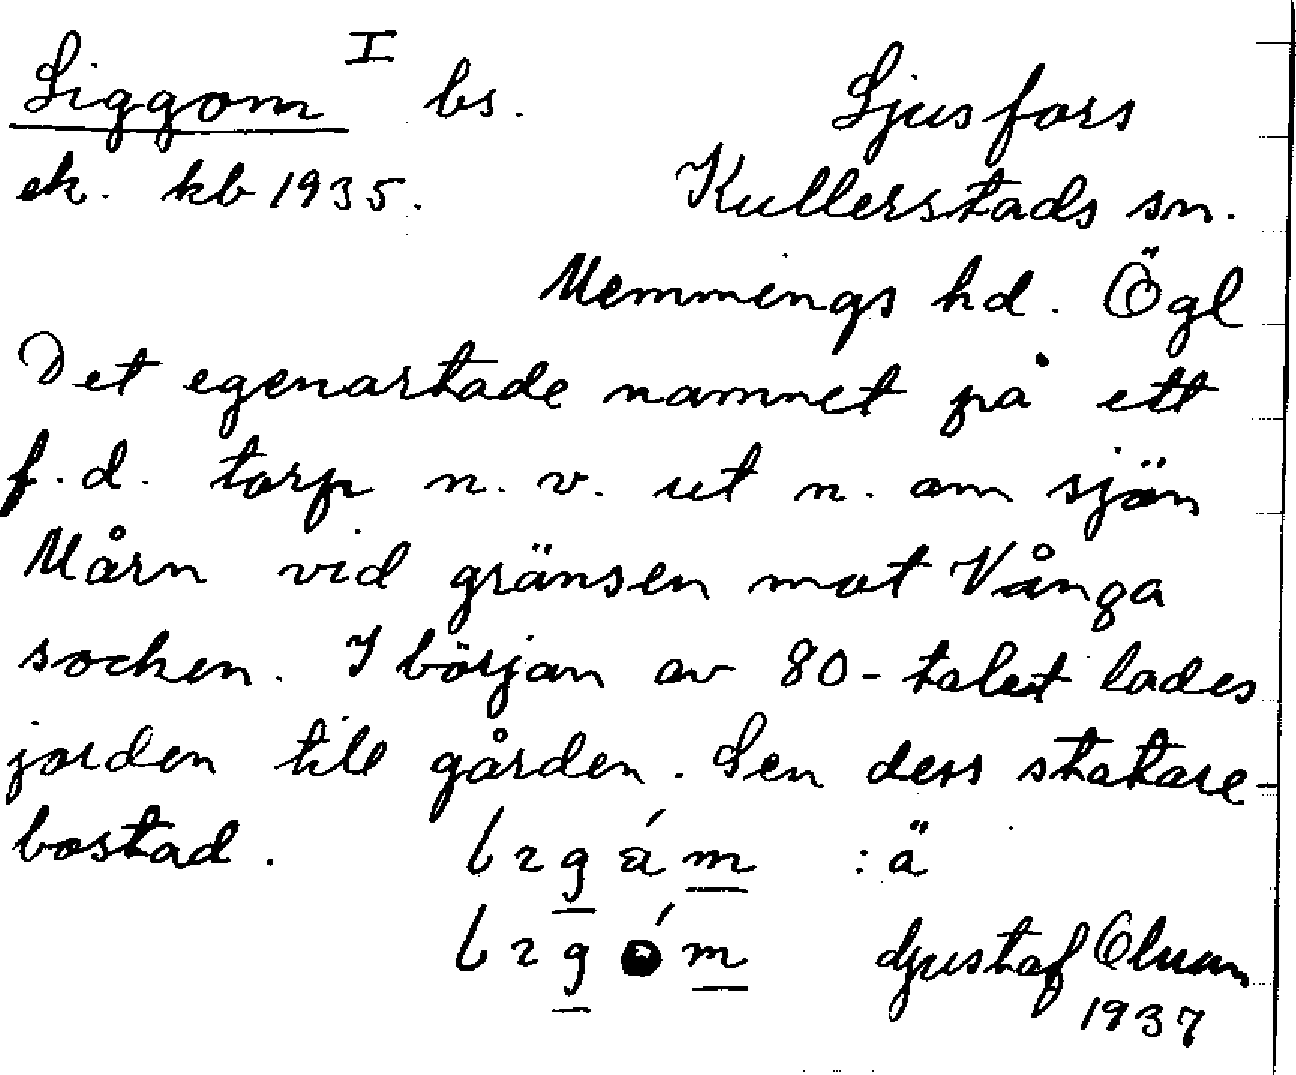 Liggom I bs. Ljusfors
ek. kb 1935. Kullerstads sn.
Memmings hd. Ögl
Det egenartade namnet på ett
f.d. torp n.v. ut n. om sjön
Mårn vid gränsen mot Vånga
socken. I början av 80-talet lades
jorden till gården. Sen dess statare-
bostad. lıgám : ä
lıgóm Gjustaf Olsson
1937